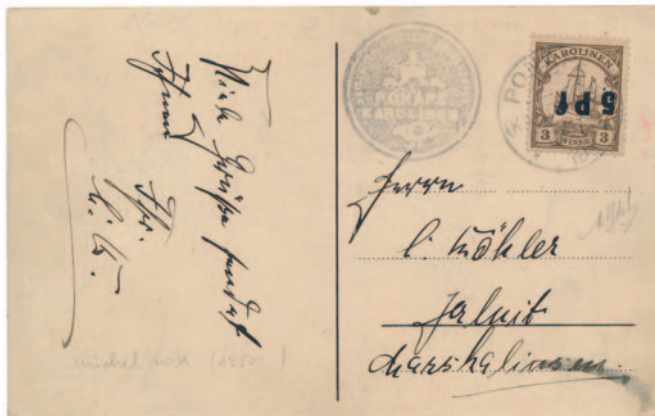 Viele Grüße sendet
Ihnen
Ihr.
PONAPE
KAROLINEN
PON
KAROLINEN
5 Pf
3 PFENNIG 3
Herrn
C. Köhler
Jaluit
Marshallinseln.
michel (1350- )